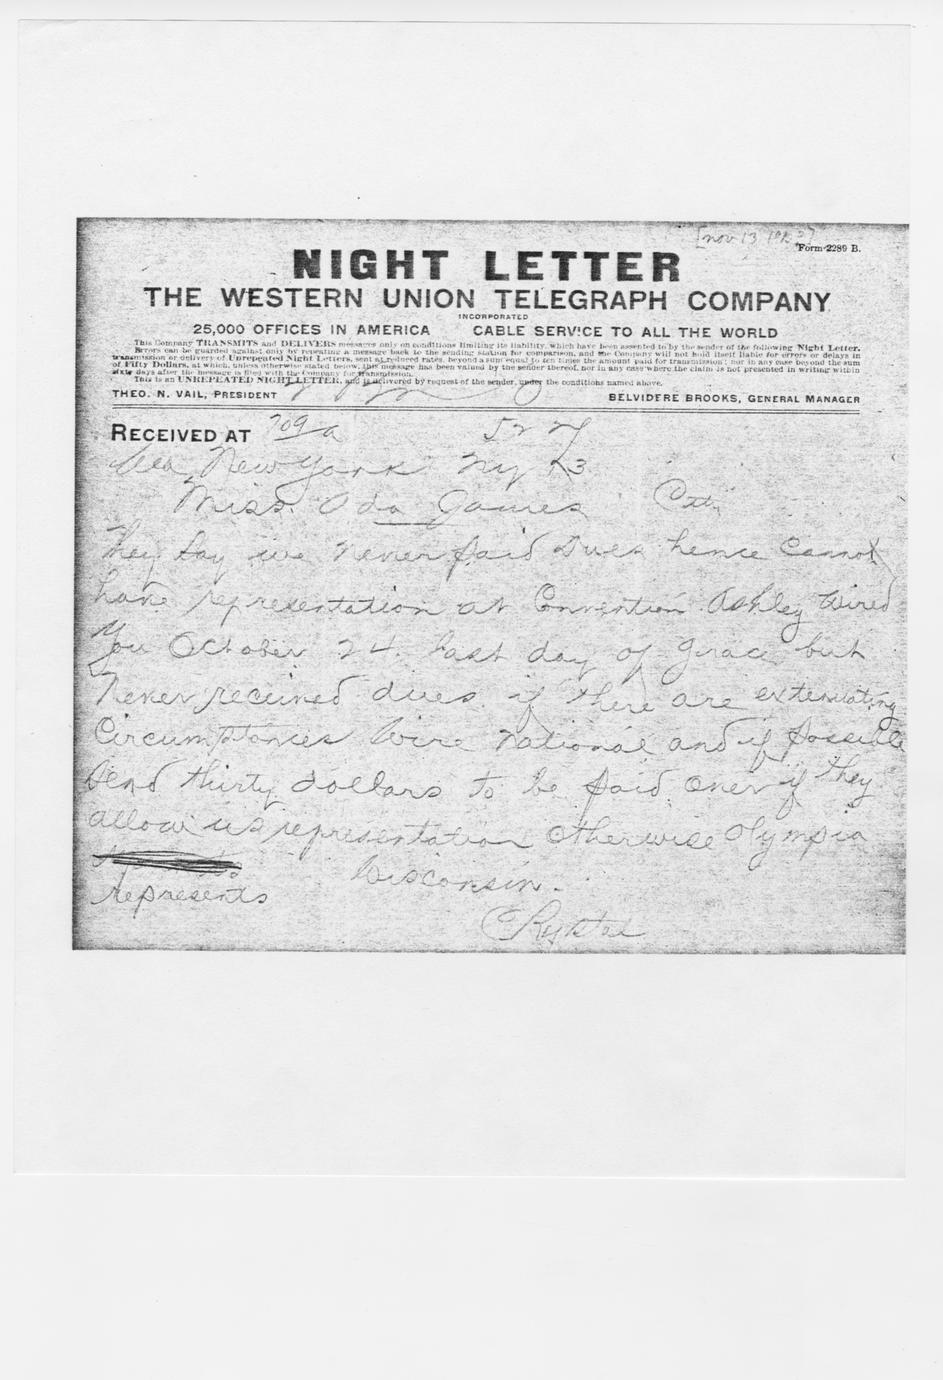 [nov 13 191
Form 2289 B.
NIGHT LETTER
THE WESTERN UNION TELEGRAPH COMPANY
INCORPORATED
25,000 OFFICES IN AMERICA CABLE SERVICE TO ALL THE WORLD
This Company TRANSMITS and DELIVERS messages only on conditions limiting its liability, which have been assented to by the sender of the following Night Letter.
Errors can be guarded against only by repeating a message back to the sending station for comparison, and the Company will not hold itself liable for errors or delays in
transmission or delivery of Unrepeated Night Letters, sent at reduced rates, beyond a sum equal to ten times the amount paid for transmission; nor in any case beyond the sum
of Fifty Dollars, at which, unless otherwise stated below, this message has been valued by the sender thereof, nor in any case where the claim is not presented in writing within
sixty days after the message is filed with the Company for transmission.
This is an UNREPEATED NIGHT LETTER, and is delivered by request of the sender, under the conditions named above.
THEO. N. VAIL, PRESIDENT BELVIDERE BROOKS, GENERAL MANAGER
RECEIVED AT 709 a
New York Ny
Miss. Ada James City
They say we never paid Dues hence Cannot
have representation at Convention Ashley Wired
You October 24. last day of grace but
Never received dues if there are extenuating
Circumstances Wire National and if possible
Send thirty dollars to be paid over if they
allow us representation Otherwise Olympia
represents Wisconsin.